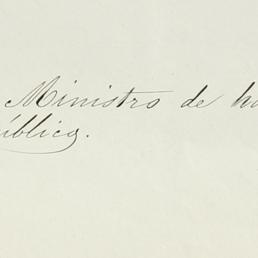 Ministro de
ública.